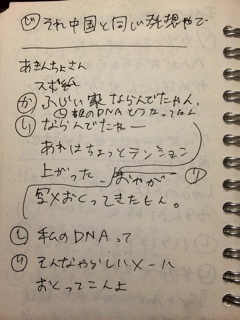 ⓗ それ中国と同じ発想やで
あきんちょさん
スポ紙
か ふじい家ならんでたやん。
親のDNAどうなってるん
り ならんでたねー
あれはちょっとテンション
上がった おやが り
写メおくってきたもん。
し 私のDNAって
り そんなやらしいメール
おくってこんよ